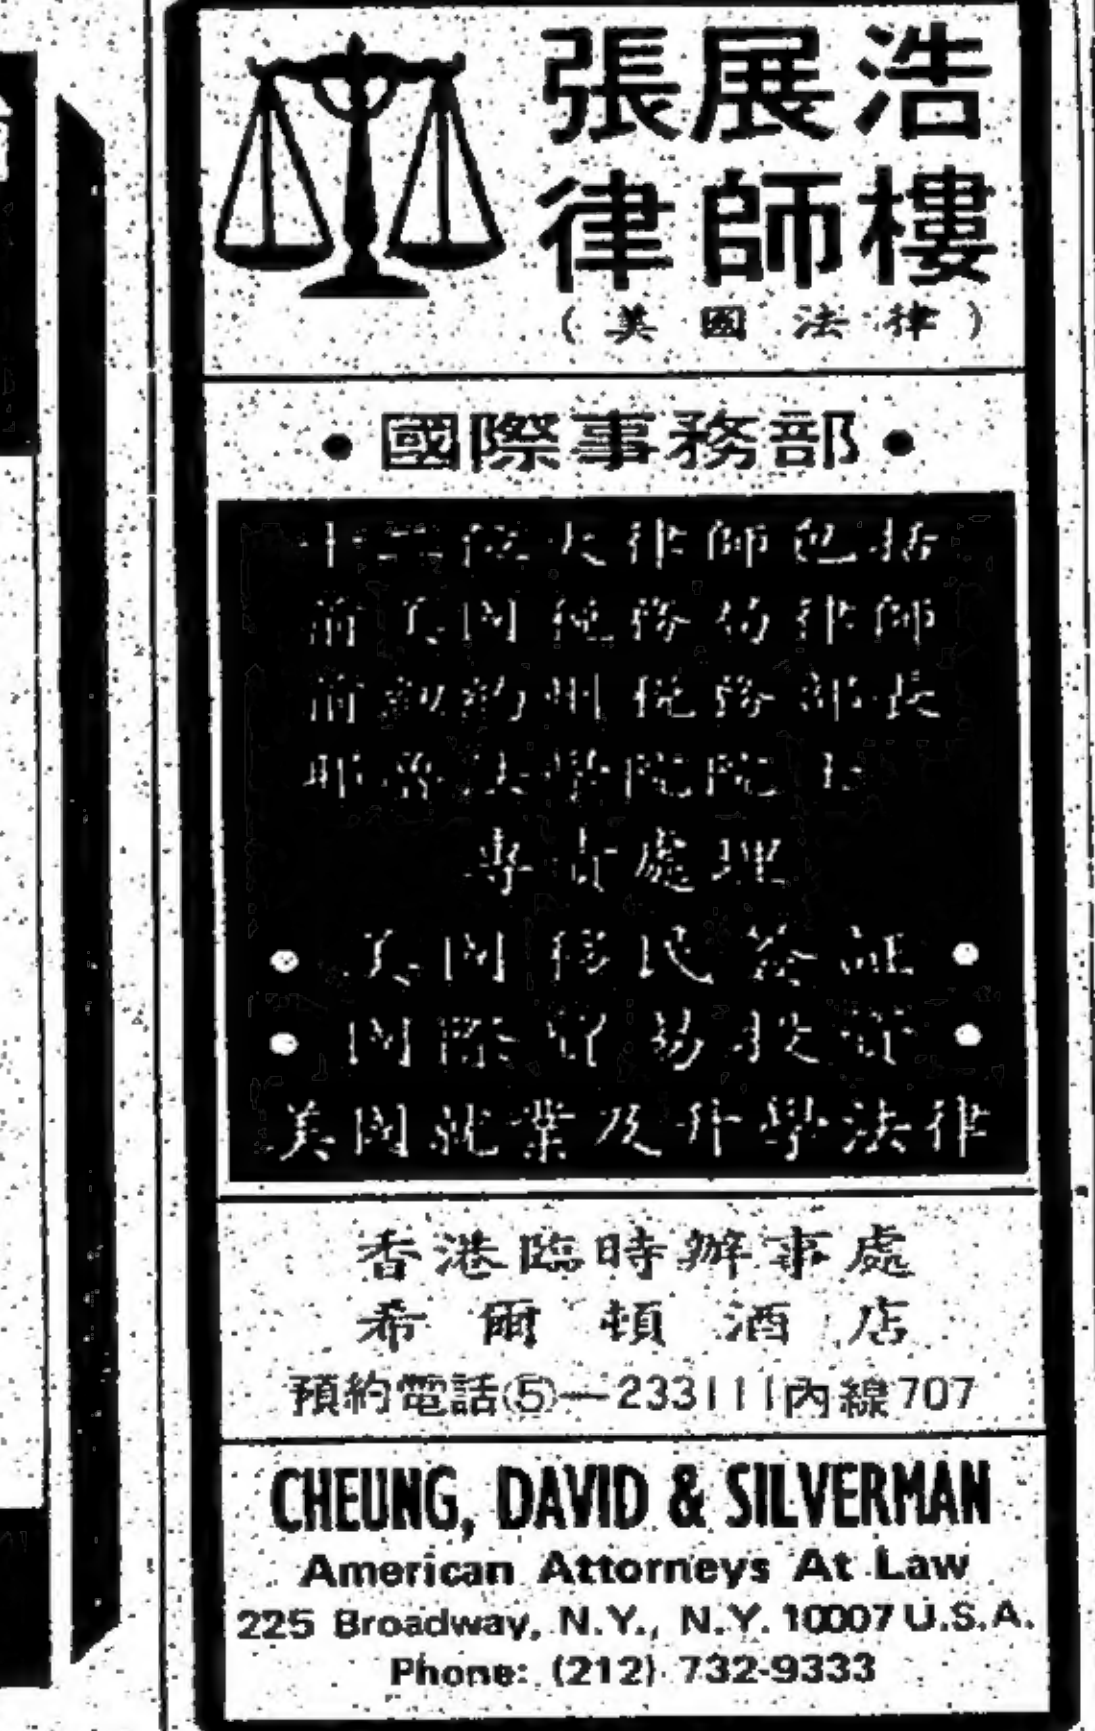 張展浩
律師樓
(美國法律)
•國際事務部•
十二位大律師包括
前美國稅務局律師
前紐約州稅務部長
耶魯法學院院士
專責處理
• 美國移民簽証 •
• 國際貿易投資 •
美國就業及升學法律
香港臨時辦事處
希爾頓酒店
預約電話⑤—233111內線707
CHEUNG, DAVID & SILVERMAN
American Attorneys At Law
225 Broadway, N.Y., N.Y. 10007 U.S.A.
Phone: (212) 732-9333